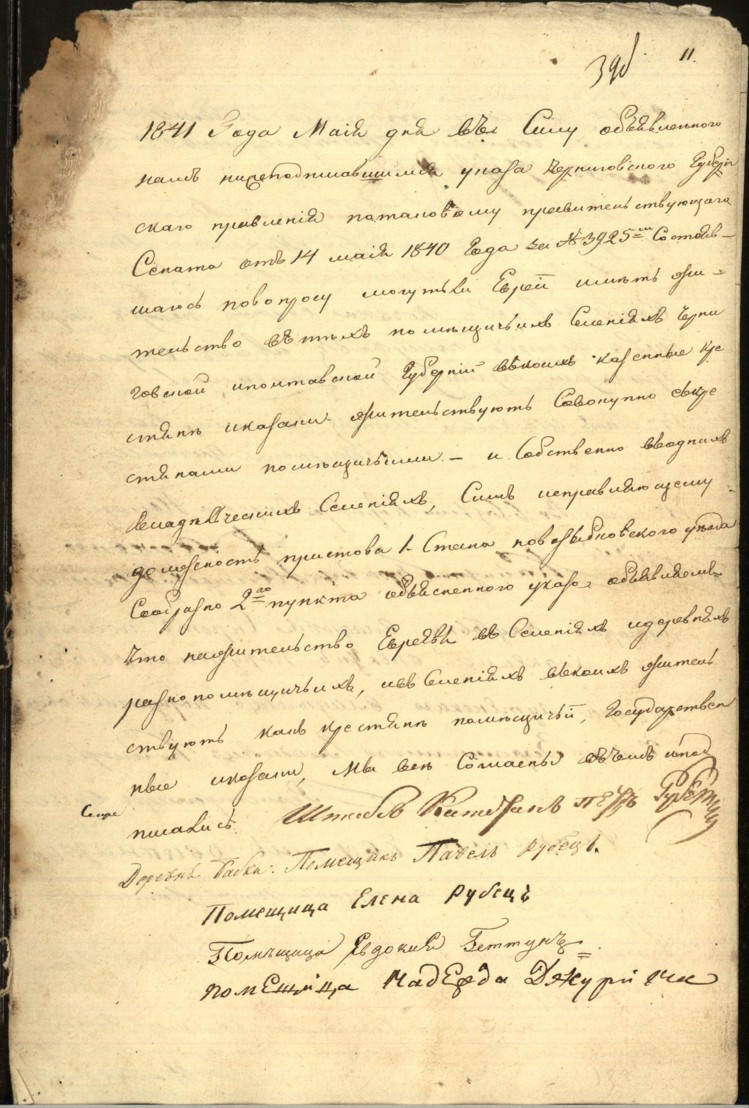 11.
39б
1841 Года Маія дня въ Силу объявленного
намъ нижеподписавшимся указа Черниговского Губерн
скаго правленія поталовому правительствующаго
Сената отъ 14 маія 1840 года за № 3925м Состояв-
шагось повопросу могутъли Евреи имѣть жи-
тельство вѣтѣхъ помѣщичьихъ Селеніяхъ Черни
говской, иполтавской Губерній вѣкоихъ казенные кре
стьяне иказаки жительствуютъ Совокупно съкре
стьянами помѣщичьими — и Собственно водних
владѣльческихъ Селеніяхъ, Симъ исправляющему
должность пристова 1. Стана новозыбковского уѣзда
Сообразно 2го пункта объясненного указа объявляемъ
что нажительство Евреевъ въ Селеніяхъ идеревняхъ
разнопомѣщичьихъ, ивъ Селеніяхъ вкоихъ житель
ствуютъ какъ крестьяне помѣщичьи, Государствен
ные иказаки, Мы всѣ Согласны въчемъ ипод
писались. Штабсъ Капитанъ Петръ Рубецъ
Деревни Бабки: Помещикъ Павелъ Рубецъ.
Помещица Елена Рубецъ
Помѣщица Евдокия Геттунъ
помещица Надежда Джури